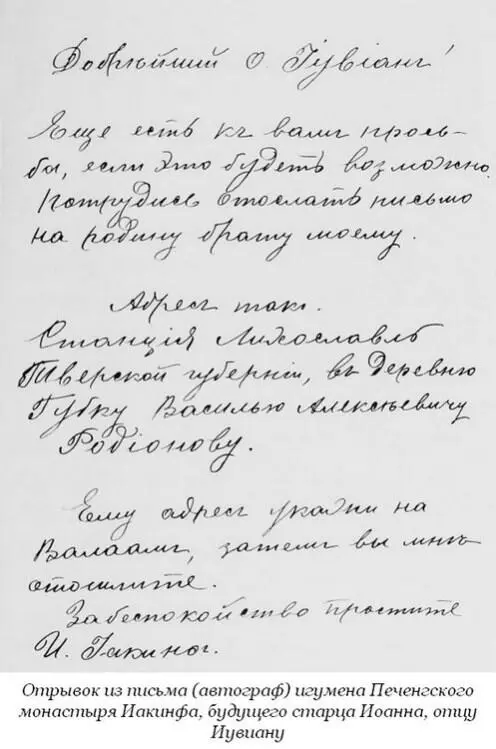 Добрѣйшій О. Іувіанъ!
Еще есть къ вамъ прось-
ба, если это будетъ возможно.
Потрудись отослать письмо
на родину брату моему.
Адресъ такъ.
Станція Лихославль
Тверской губерніи, въ деревню
Губку Василью Алексѣевичу
Родіонову.
Ему адресъ укажи на
Валаамъ, затемъ вы мнѣ
отошлите.
За беспокойство простите
И. Іакинѳъ.
Отрывок из письма (автограф) игумена Печенгского
монастыря Иакинфа, будущего старца Иоанна, отцу
Иувиану